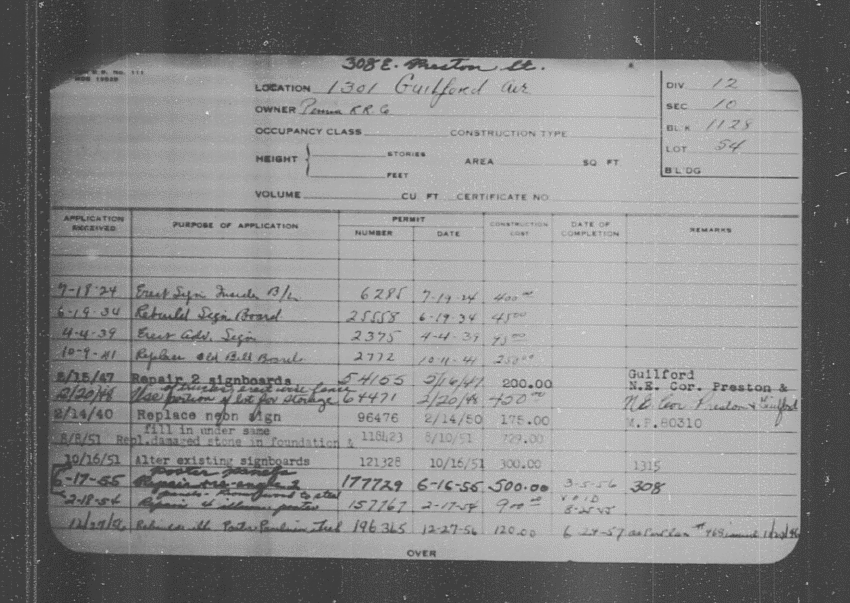 308 E. Preston St.
LOCATION 1301 Guilford Ave
DIV 12
OWNER Penna R.R. Co
SEC 10
OCCUPANCY CLASS CONSTRUCTION TYPE
BLK 1128
HEIGHT { STORIES AREA SQ FT
LOT 54
FEET
BLDG
VOLUME CU FT CERTIFICATE NO
APPLICATION RECEIVED PURPOSE OF APPLICATION PERMIT NUMBER DATE CONSTRUCTION COST DATE OF COMPLETION REMARKS
7-18-24 Erect Sign Inside B/L 6285 7-19-24 400.00
6-19-34 Rebuild Sign Board 25558 6-19-34 45.00
4-4-39 Erect Adv. Sign 2375 4-4-39
10-9-41 Replace Old Bill Board 2772 10-11-41 250.00
Guilford
2/15/47 Repair 2 signboards 54155 2/16/47 200.00 N.E. Cor. Preston &
of trucks; erect wire fence
2/20/48 Use portion of lot for storage 64471 2/20/48 450.00 N.E. Cor Preston & Guilford
2/14/40 Replace neon sign 96476 2/14/50 175.00 M.F.80310
fill in under same
8/8/51 Repl.damaged stone in foundation & 118423 8/10/51 729.00
10/16/51 Alter existing signboards 121328 10/16/51 300.00 1315
poster panels
6-17-55 Repair 177729 6-16-55 500.00 3-5-56 308
panels - from wood to steel VOID
2-18-54 Repair 4 illum. poster 157767 2-17-54 900.00 8-25-55
12/27/56 Poster Panel 196365 12-27-56 120.00 6-24-57 as per plan #468 issued
OVER